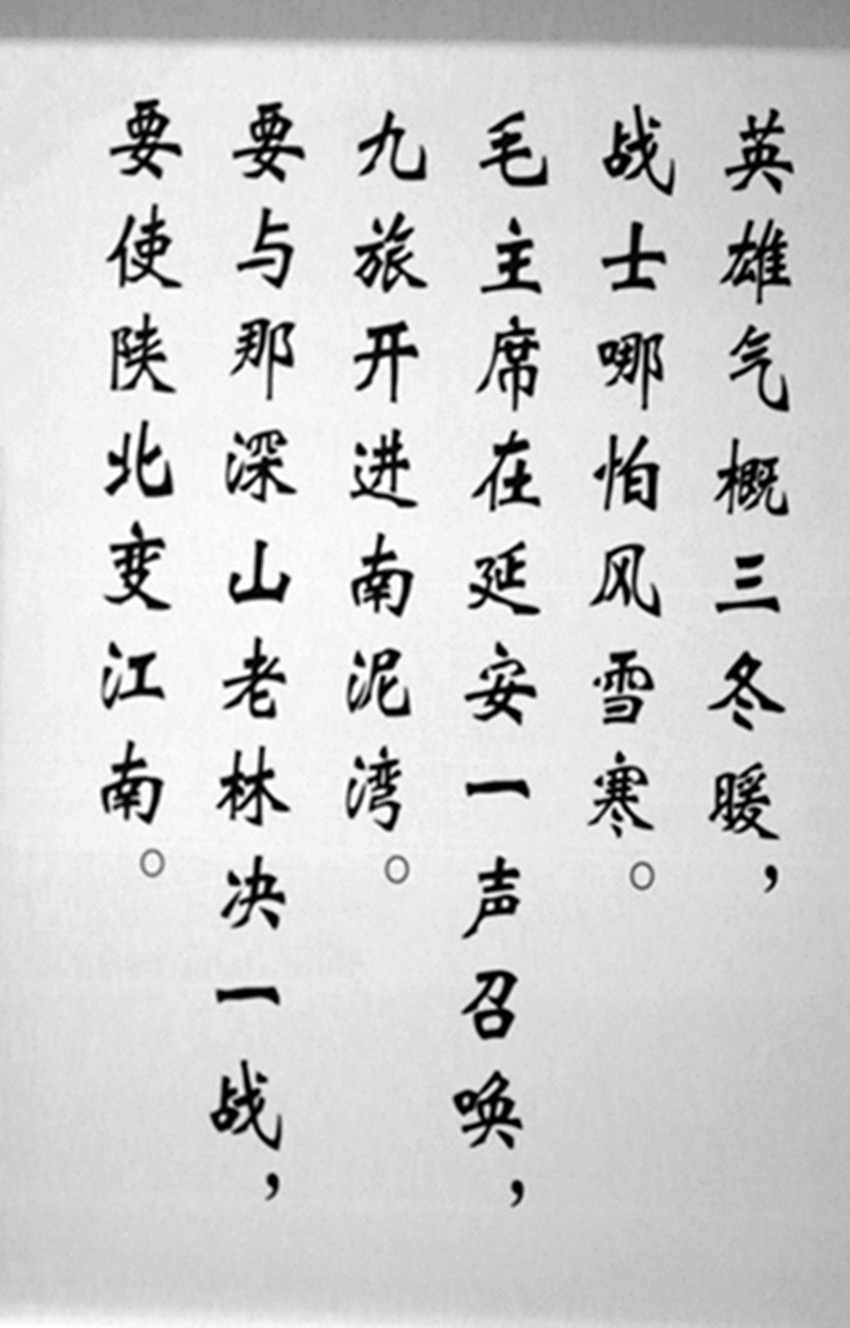 英雄气概三冬暖，
战士哪怕风雪寒。
毛主席在延安一声召唤，
九旅开进南泥湾。
要与那深山老林决一战，
要使陕北变江南。